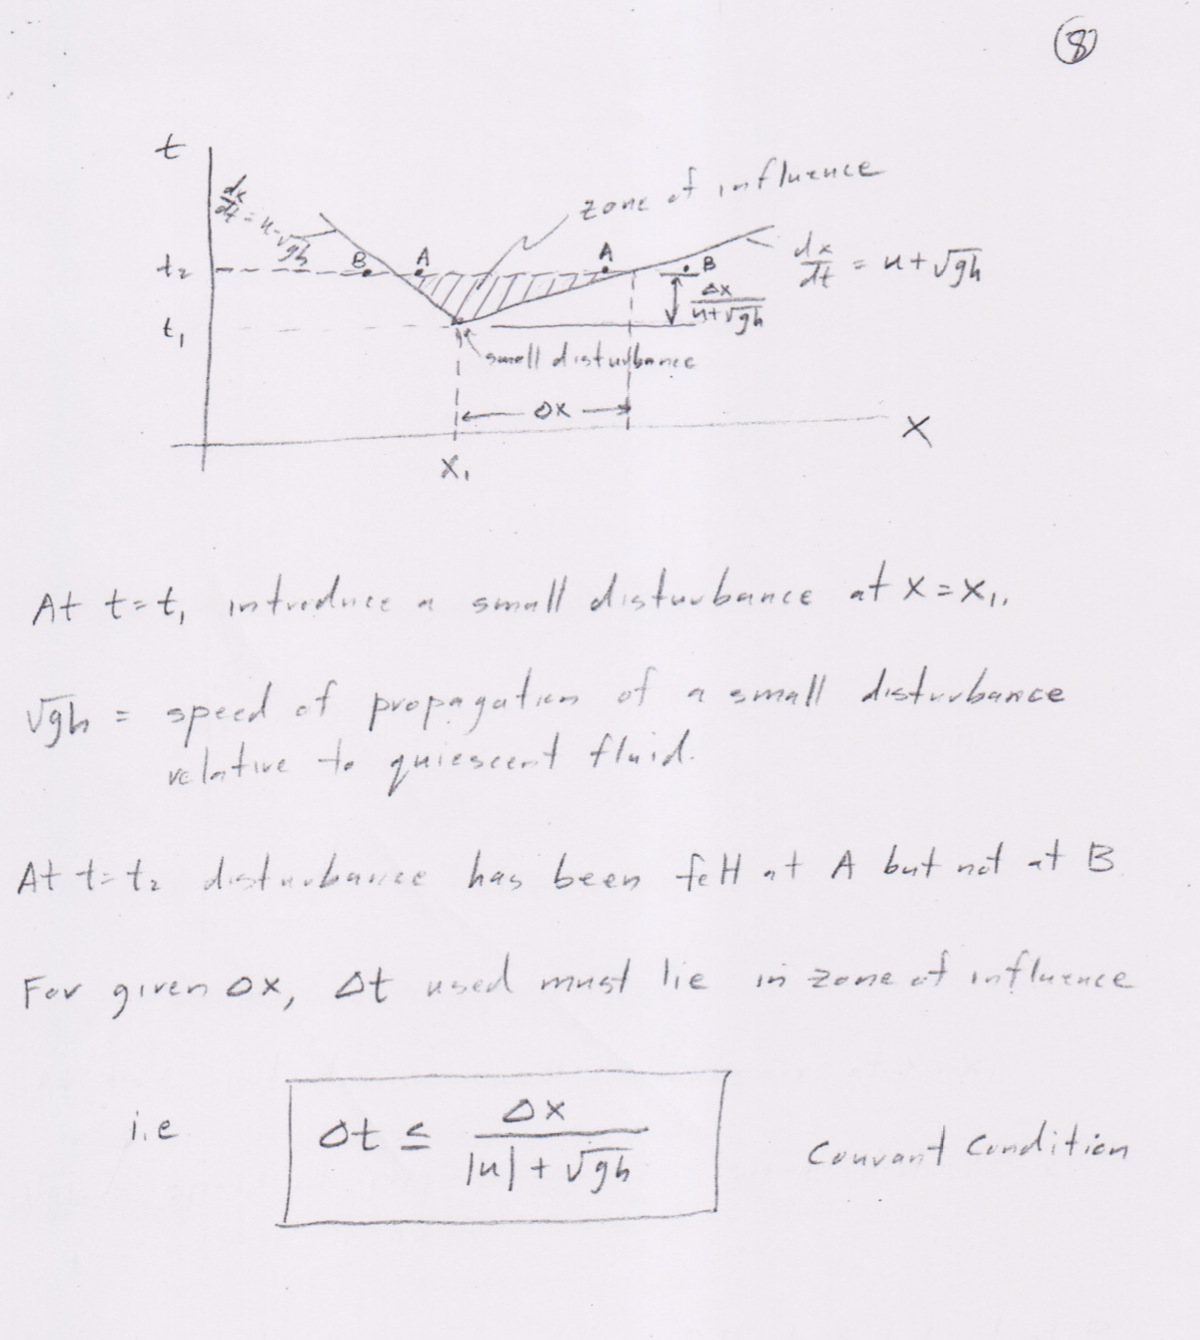 8
t
dx/dt = u-√gh
zone of influence
t₂
B
A
A
B
dx/dt = u+√gh
Δx/(u+√gh)
t₁
small disturbance
Δx
X
X₁
At t=t₁ introduce a small disturbance at x=x₁.
√gh = speed of propagation of a small disturbance
relative to quiescent fluid.
At t=t₂ disturbance has been felt at A but not at B
For given Δx, Δt used must lie in zone of influence
i.e Δt ≤ Δx/(|u|+√gh) Courant Condition